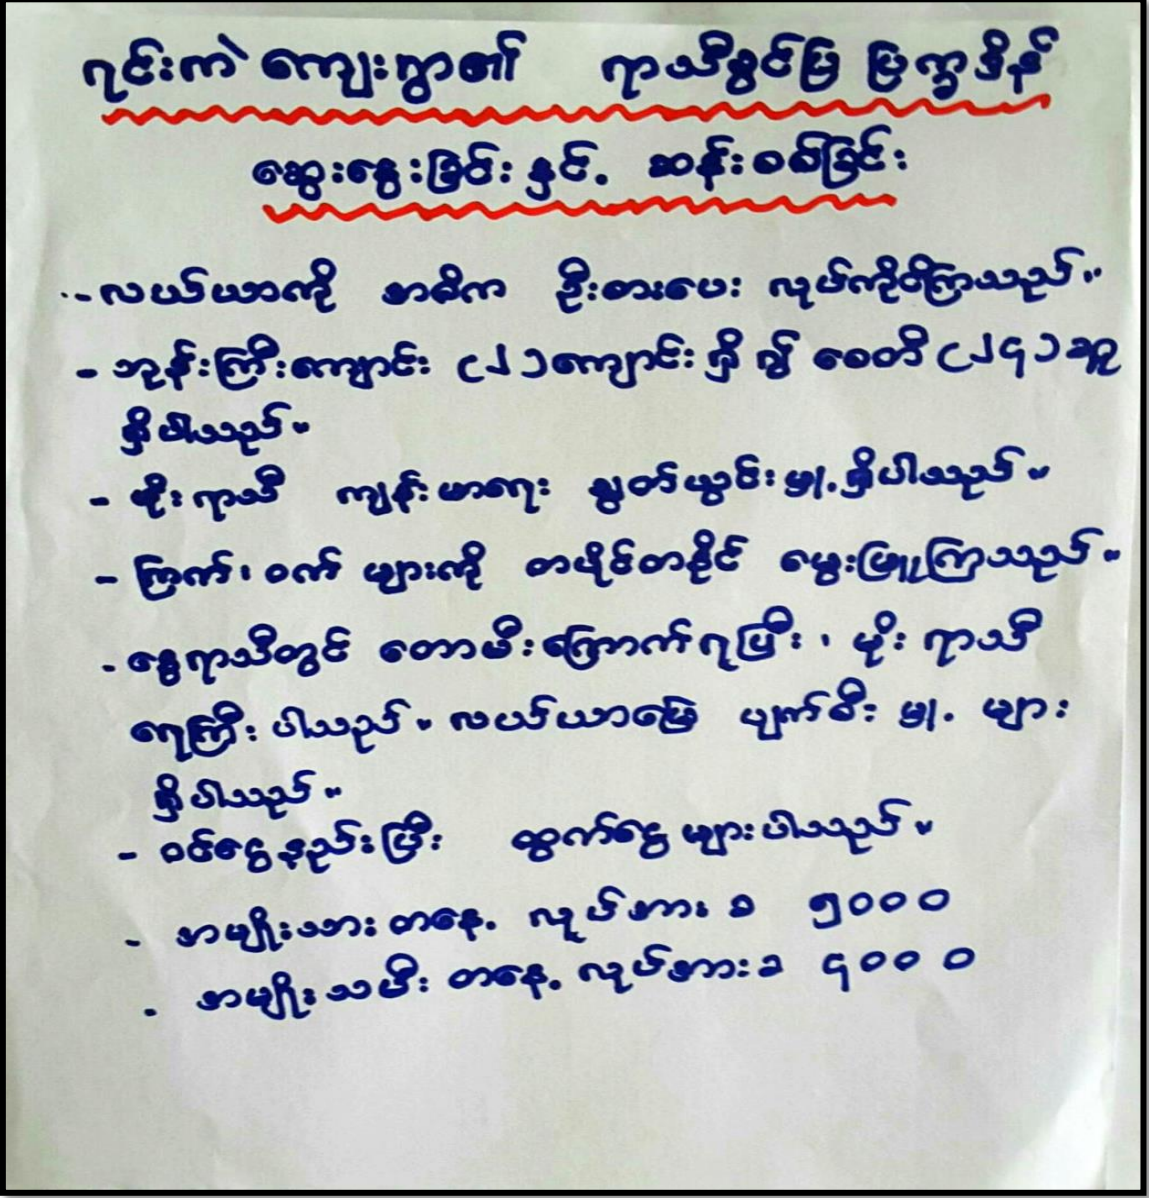 ရင်းကဲ ကျေးရွာ၏ ရာသီခွင်ပြ ပြက္ခဒိန်
ဆွေးနွေးခြင်း နှင့် ဆန်းစစ်ခြင်း
- လယ်ယာကို အဓိက ဦးစားပေး လုပ်ကိုင်ကြသည်။
- ဘုန်းကြီးကျောင်း (၂)ကျောင်း ရှိ၍ စေတီ (၂၄)ဆူ
ရှိပါသည်။
- မိုးရာသီ ကျန်းမာရေး ချွတ်ယွင်းမှု ရှိပါသည်။
- ကြက်၊ ဝက် များကို တပိုင်တနိုင် မွေးမြူကြသည်။
- နွေရာသီတွင် တောမီးကြောက်ရပြီး၊ မိုး ရာသီ
ရေကြီး ပါသည်။ လယ်ယာမြေ ပျက်စီး မှု များ
ရှိပါသည်။
- ဝင်ငွေနည်းပြီး ထွက်ငွေ များပါသည်။
- အမျိုးသား တနေ့ လုပ်အားခ ၅၀၀၀
- အမျိုးသမီး တနေ့ လုပ်အားခ ၄၀၀၀